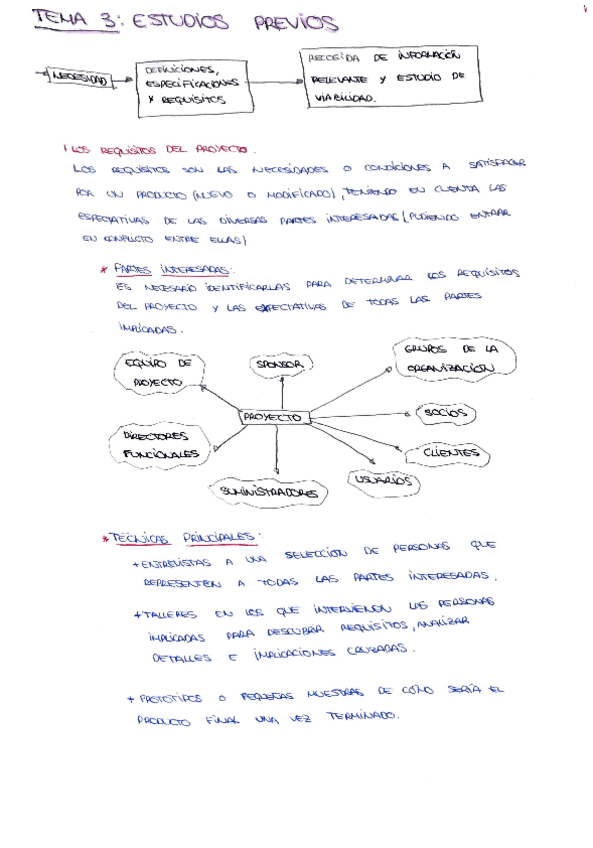 TEMA 3: ESTUDIOS PREVIOS
NECESIDAD
DEFINICIONES,
ESPECIFICACIONES
Y REQUISITOS
RECOGIDA DE INFORMACIÓN
RELEVANTE Y ESTUDIO DE
VIABILIDAD.
1 LOS REQUISITOS DEL PROYECTO.
LOS REQUISITOS SON LAS NECESIDADES O CONDICIONES A SATISFACER
POR UN PRODUCTO (NUEVO O MODIFICADO), TENIENDO EN CUENTA LAS
ESPECTATIVAS DE LAS DIVERSAS PARTES INTERESADAS (PUDIENDO ENTRAR
EN CONFLICTO ENTRE ELLAS)
* PARTES INTERESADAS:
ES NECESARIO IDENTIFICARLAS PARA DETERMINAR LOS REQUISITOS
DEL PROYECTO Y LAS EXPECTATIVAS DE TODAS LAS PARTES
IMPLICADAS.
EQUIPO DE
PROYECTO
SPONSOR
GRUPOS DE LA
ORGANIZACIÓN
PROYECTO
SOCIOS
DIRECTORES
FUNCIONALES
CLIENTES
SUMINISTRADORES
USUARIOS
* TÉCNICAS PRINCIPALES:
+ ENTREVISTAS A UNA SELECCIÓN DE PERSONAS QUE
REPRESENTEN A TODAS LAS PARTES INTERESADAS.
+ TALLERES EN LOS QUE INTERVIENEN LAS PERSONAS
IMPLICADAS PARA DESCUBRIR REQUISITOS, ANALIZAR
DETALLES E IMPLICACIONES CRUZADAS.
+ PROTOTIPOS O PEQUEÑAS MUESTRAS DE CÓMO SERÍA EL
PRODUCTO FINAL UNA VEZ TERMINADO.